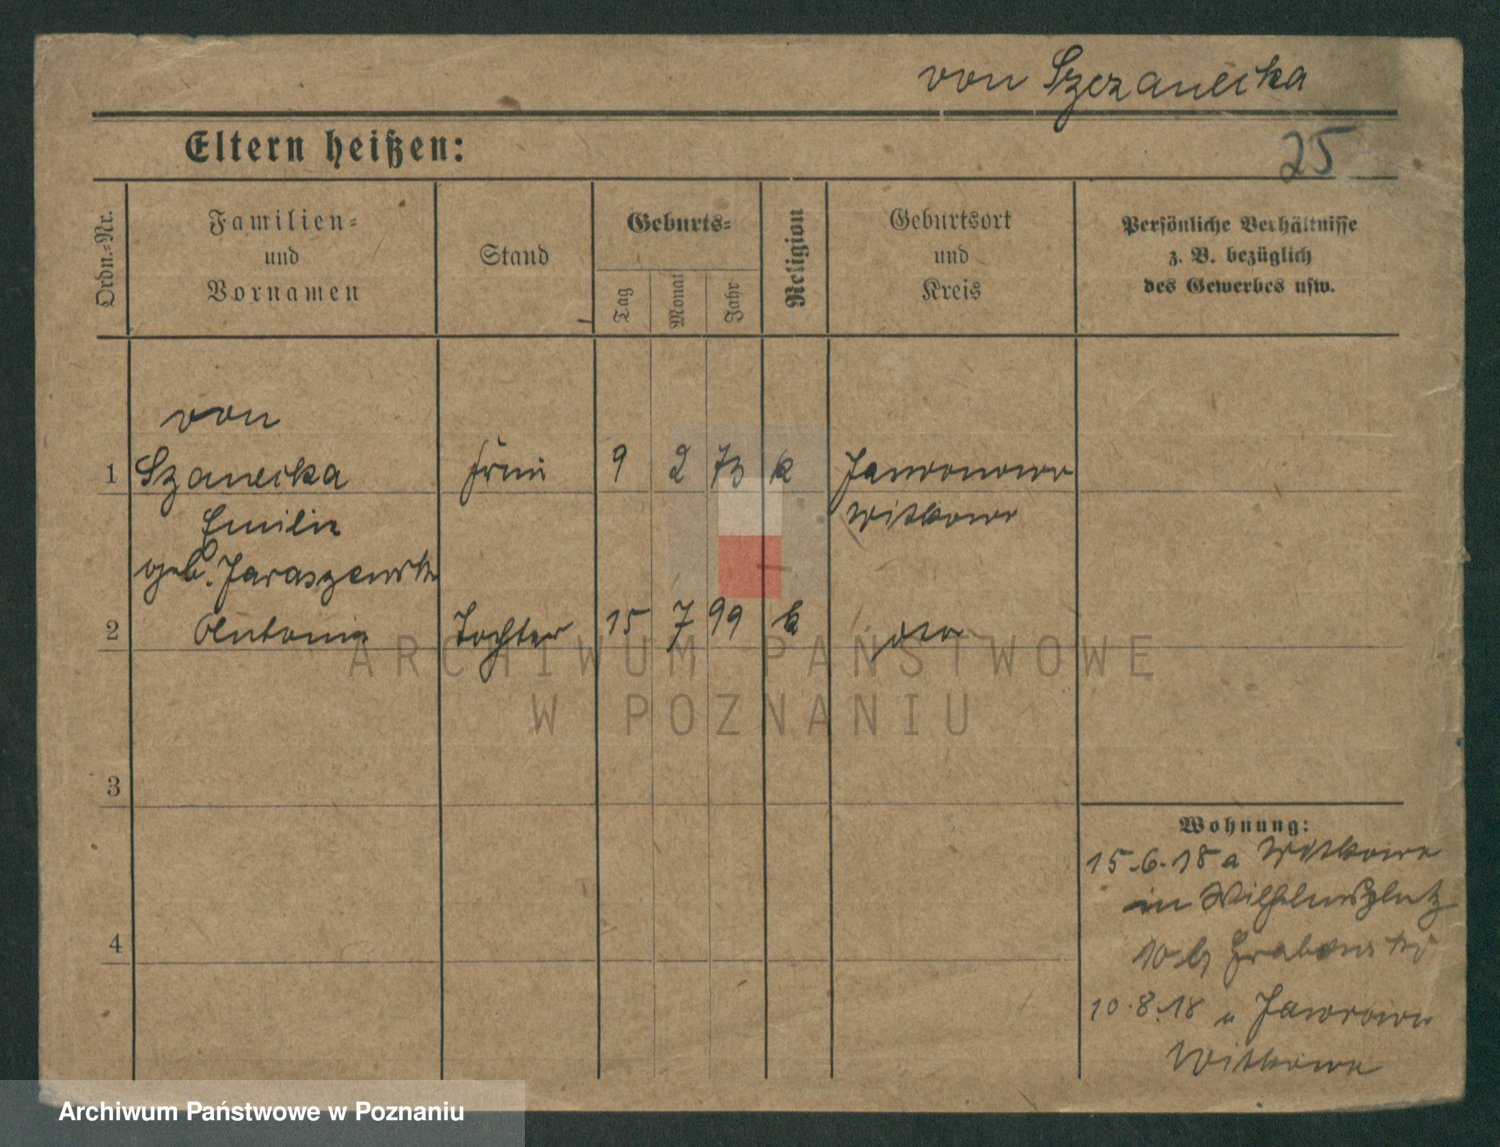 von Szczanecka
Eltern heißen:
25
Ordn.-Nr.
Familien-
und
Vornamen
Stand
Geburts-
Tag
Monat
Jahr
Religion
Geburtsort
und
Kreis
Persönliche Verhältnisse
z. B. bezüglich
des Gewerbes usw.
von
1 Szanecka frau 9 2 73 k Jaworowo
Emilie Witkowo
geb. Jaraszewska
2 Antonie Tochter 15 7 99 k
ARCHIWUM PAŃSTWOWE
W POZNANIU
3
4
Wohnung:
15.6.18 a Witkowo
in Wilhelmsplatz
10 b Grabowski
10.8.18 n Jaworowo
Witkowo
Archiwum Państwowe w Poznaniu